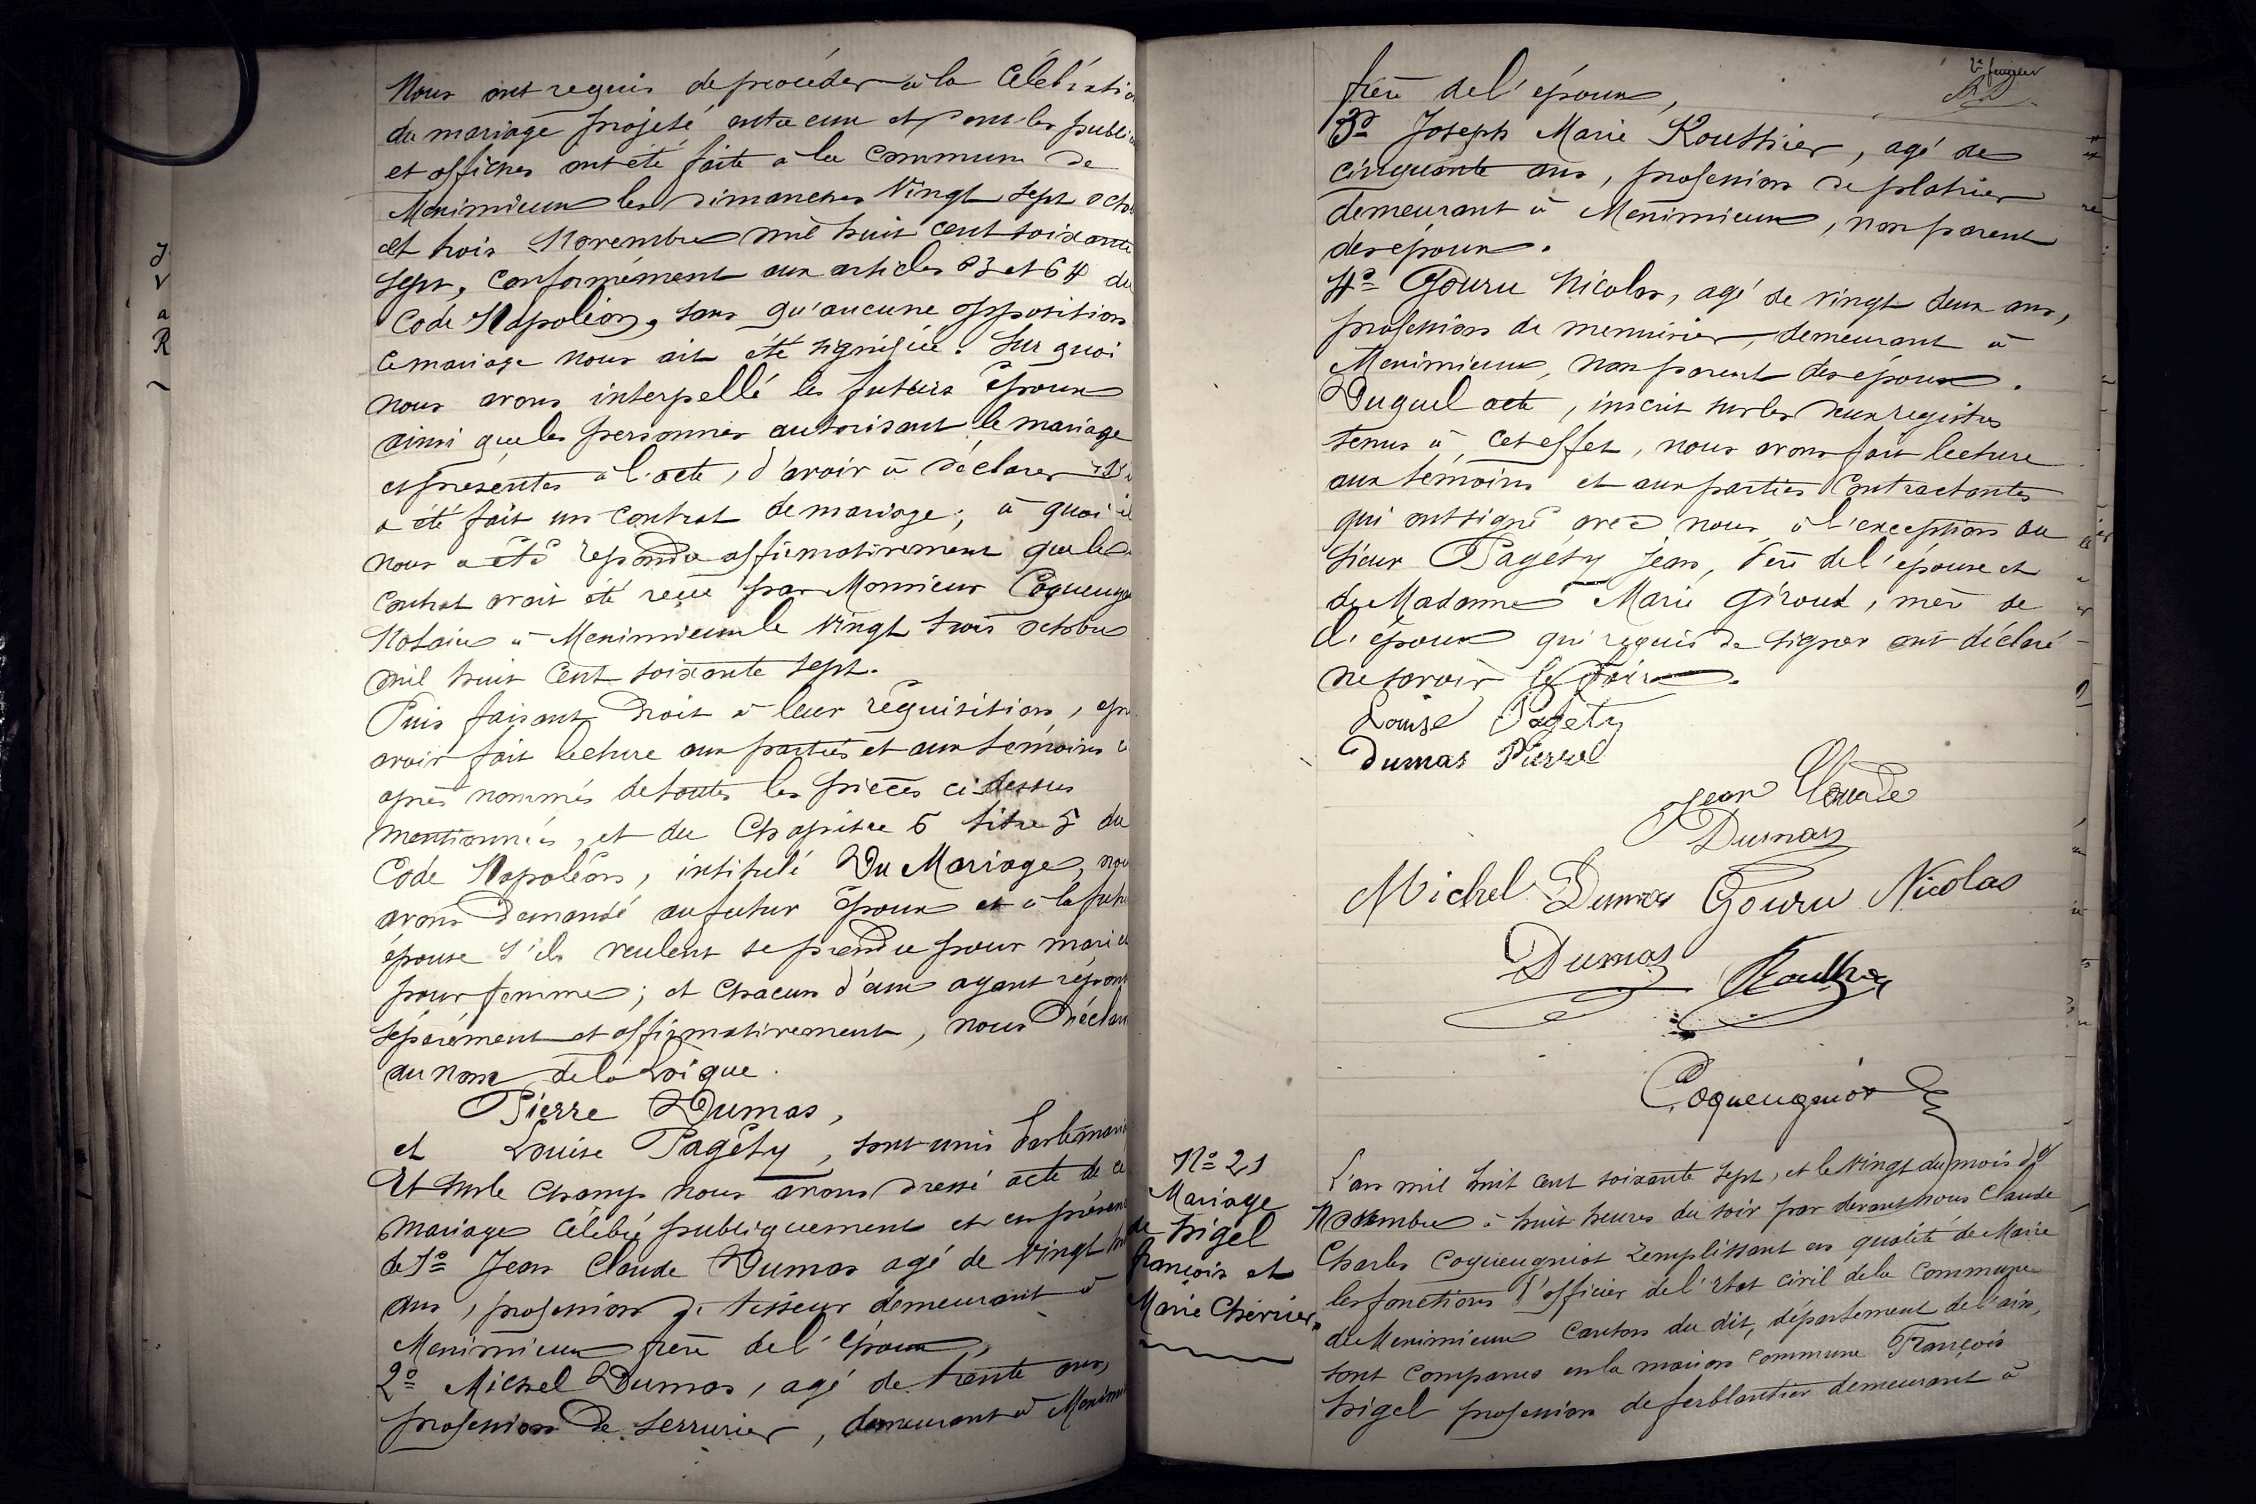 Nous ont requis de procéder à la Célébratio
du mariage projeté entre eux et dont les publi
et affiches ont été faite à la Commune de
Meximieux les dimanches Vingt Sept octo
et trois Novembre mil huit cent soixante
Sept, Conformément aux articles 63 et 64 du
Code Napoléon, sans qu'aucune opposition
ce mariage nous ait été signifiée. Sur quoi
nous avons interpellé les futurs époux
ainsi que les personnes autorisant le mariage
et présentes à l'acte, d'avoir à déclarer s'il
a été fait un Contrat de mariage; à quoi il
nous a été répondu affirmativement que le
Contrat avait été reçu par Monsieur
Notaire à Meximieux le Vingt trois octobre
mil huit Cent soixante sept.
Puis faisant Droit à leur réquisition, apr
avoir fait lecture aux parties et aux témoins c
après nommés de toutes les pièces ci dessus
mentionnées, et du Chapitre 6 titre 5 du
Code Napoléon, intitulé Du Mariage, nou
avons Demandé au futur Epoux et à la futu
épouse s'ils veulent se prendre pour mari et
pour femme; et chacun d'eux ayant répon
séparément et affirmativement, nous Déclar
au nom de la Loi que
Pierre Dumas,
et Louise Pagéty, sont unis par le mari
Et sur le champ nous avons dressé acte de ce
mariage Célébré publiquement et en présen
de 1º Jean Claude Dumas agé de Vingt
ans, profession de tisseur demeurant à
Meximieux frère de l'époux,
2º Michel Dumas, agé de trente ans,
profession De Serrurier, demeurant à Meximi
frère de l'époux,
3º Joseph Marie Routhier, agé de
cinquante ans, profession de platrier
demeurant à Meximieux, non parent
des époux.
4º Gouru Nicolas, agé de vingt deux ans,
profession de menuisier, demeurant à
Meximieux, non parent des époux.
Duquel acte, inscrit sur les deux registres
tenus à cet effet, nous avons fait lecture
aux témoins et aux parties Contractantes
qui ont signé avec nous à l'exception du
Sieur Pagéty Jean, Père de l'épouse et
de Madame Marie Giroud, mère de
l'époux qui requis de signer ont déclaré
ne savoir le faire.
Louise Pagéty
Dumas Pierre
Jean Claude
Dumas
Michel Dumas Gouru Nicolas
Dumas Routhier
Coqueugniot
Nº 21
Mariage
de Trigel
François et
Marie Chérier
L'an mil huit cent soixante sept, et le Vingt du mois de
Novembre à huit heures du soir par devant nous Claude
Charles Coqueugniot remplissant en qualité de Maire
les fonctions d'officier de l'état civil de la Commune
de Meximieux Canton du dit, département de l'ain,
sont comparus en la maison commune François
Trigel profession de ferblantier demeurant à